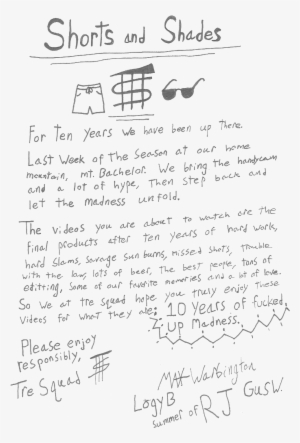 Shorts and Shades
For ten years we have been up there.
Last week of the season at our home
mountain, mt. Bachelor. We bring the handycam
and a lot of hype, Then step back and
let the madness unfold.
The videos you are about to watch are the
final products after ten years of hard work,
hard slams, savage sun burns, missed shots, trouble
with the law, lots of beer, The best people, tons of
editting, some of our favorite memories and a lot of love.
So we at tre squad hope you truly enjoy these
videos for what they are: 10 years of fucked
up Madness.
Please enjoy
responsibly,
Tre Squad
Matt Warbington
Logy B
summer of RJ
Gus W.